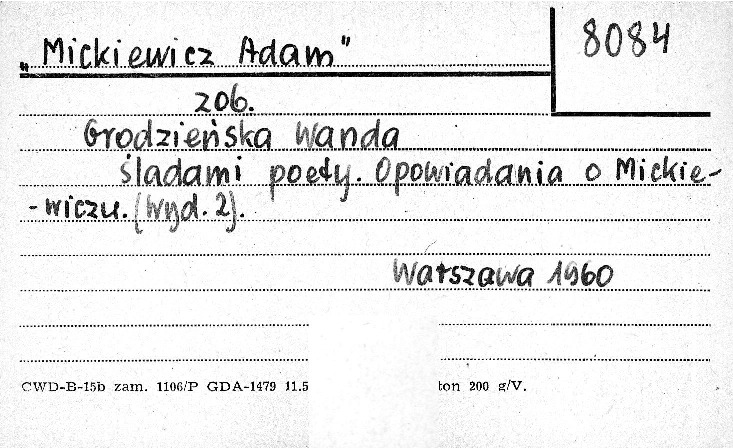 „Mickiewicz Adam"
8084
zob.
Grodzieńska Wanda
śladami poety. Opowiadania o Mickie-
-wiczu. (Wyd. 2).
Warszawa 1960
CWD-B-15b zam. 1106/P GDA-1479 11.5 ton 200 g/V.